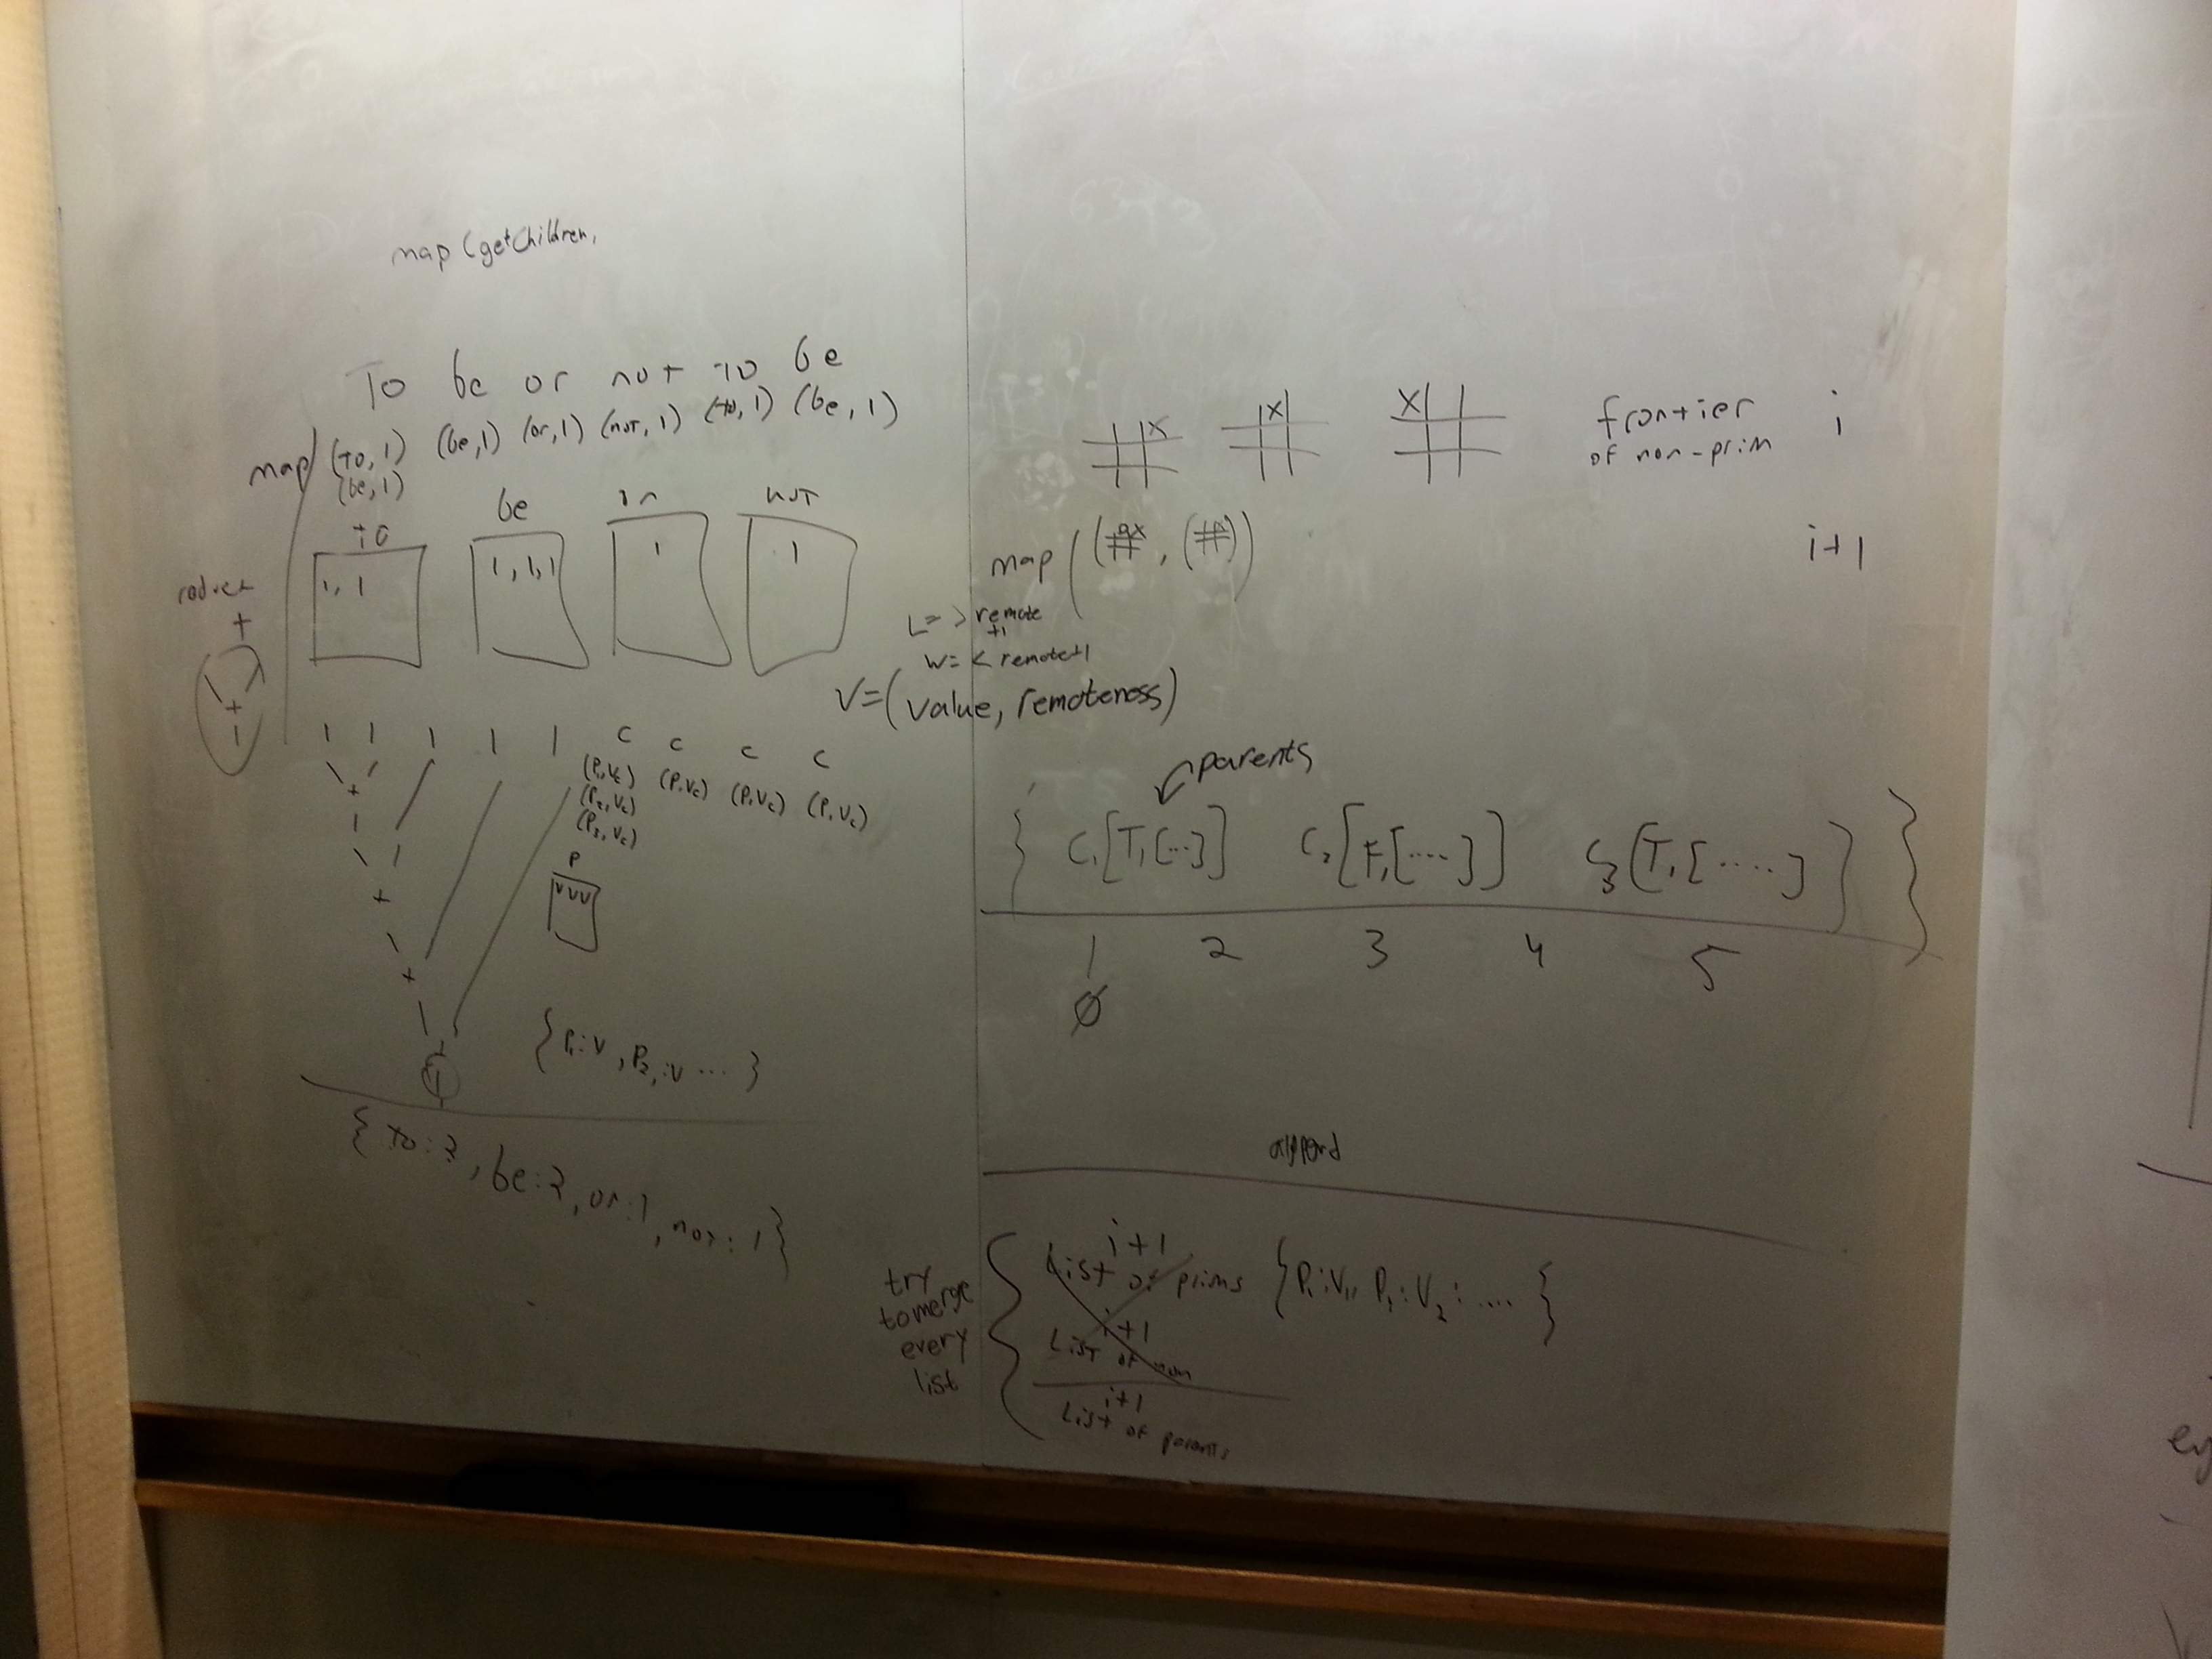 map (getChildren,
To be or not to be
map (to, 1) (be, 1) (or, 1) (not, 1) (to, 1) (be, 1)
(be, 1)
to be or not
1, 1 1, 1, 1 1 1
reduce
+
+
1
1 1 1 1 1 c c c c
(P1, Vc) (P, Vc) (P, Vc) (P, Vc)
(P2, Vc)
(P3, Vc)
+
1
+
+
P
V V V
{P1:V, P2,:V ... }
{to:2, be:2, or:1, not:1}
X X X frontier i
of non-prim
map i+1
L = > remote
+1
W = < remote+1
V=(value, remoteness)
parents
{ C1[T,[...]] C2[F,[....]] C3[T,[.....] }
1 2 3 4 5
Ø
append
try
to merge
every
list
i+1
List of prims {P1:V1, P2:V2: .... }
i+1
List of non
i+1
List of parents